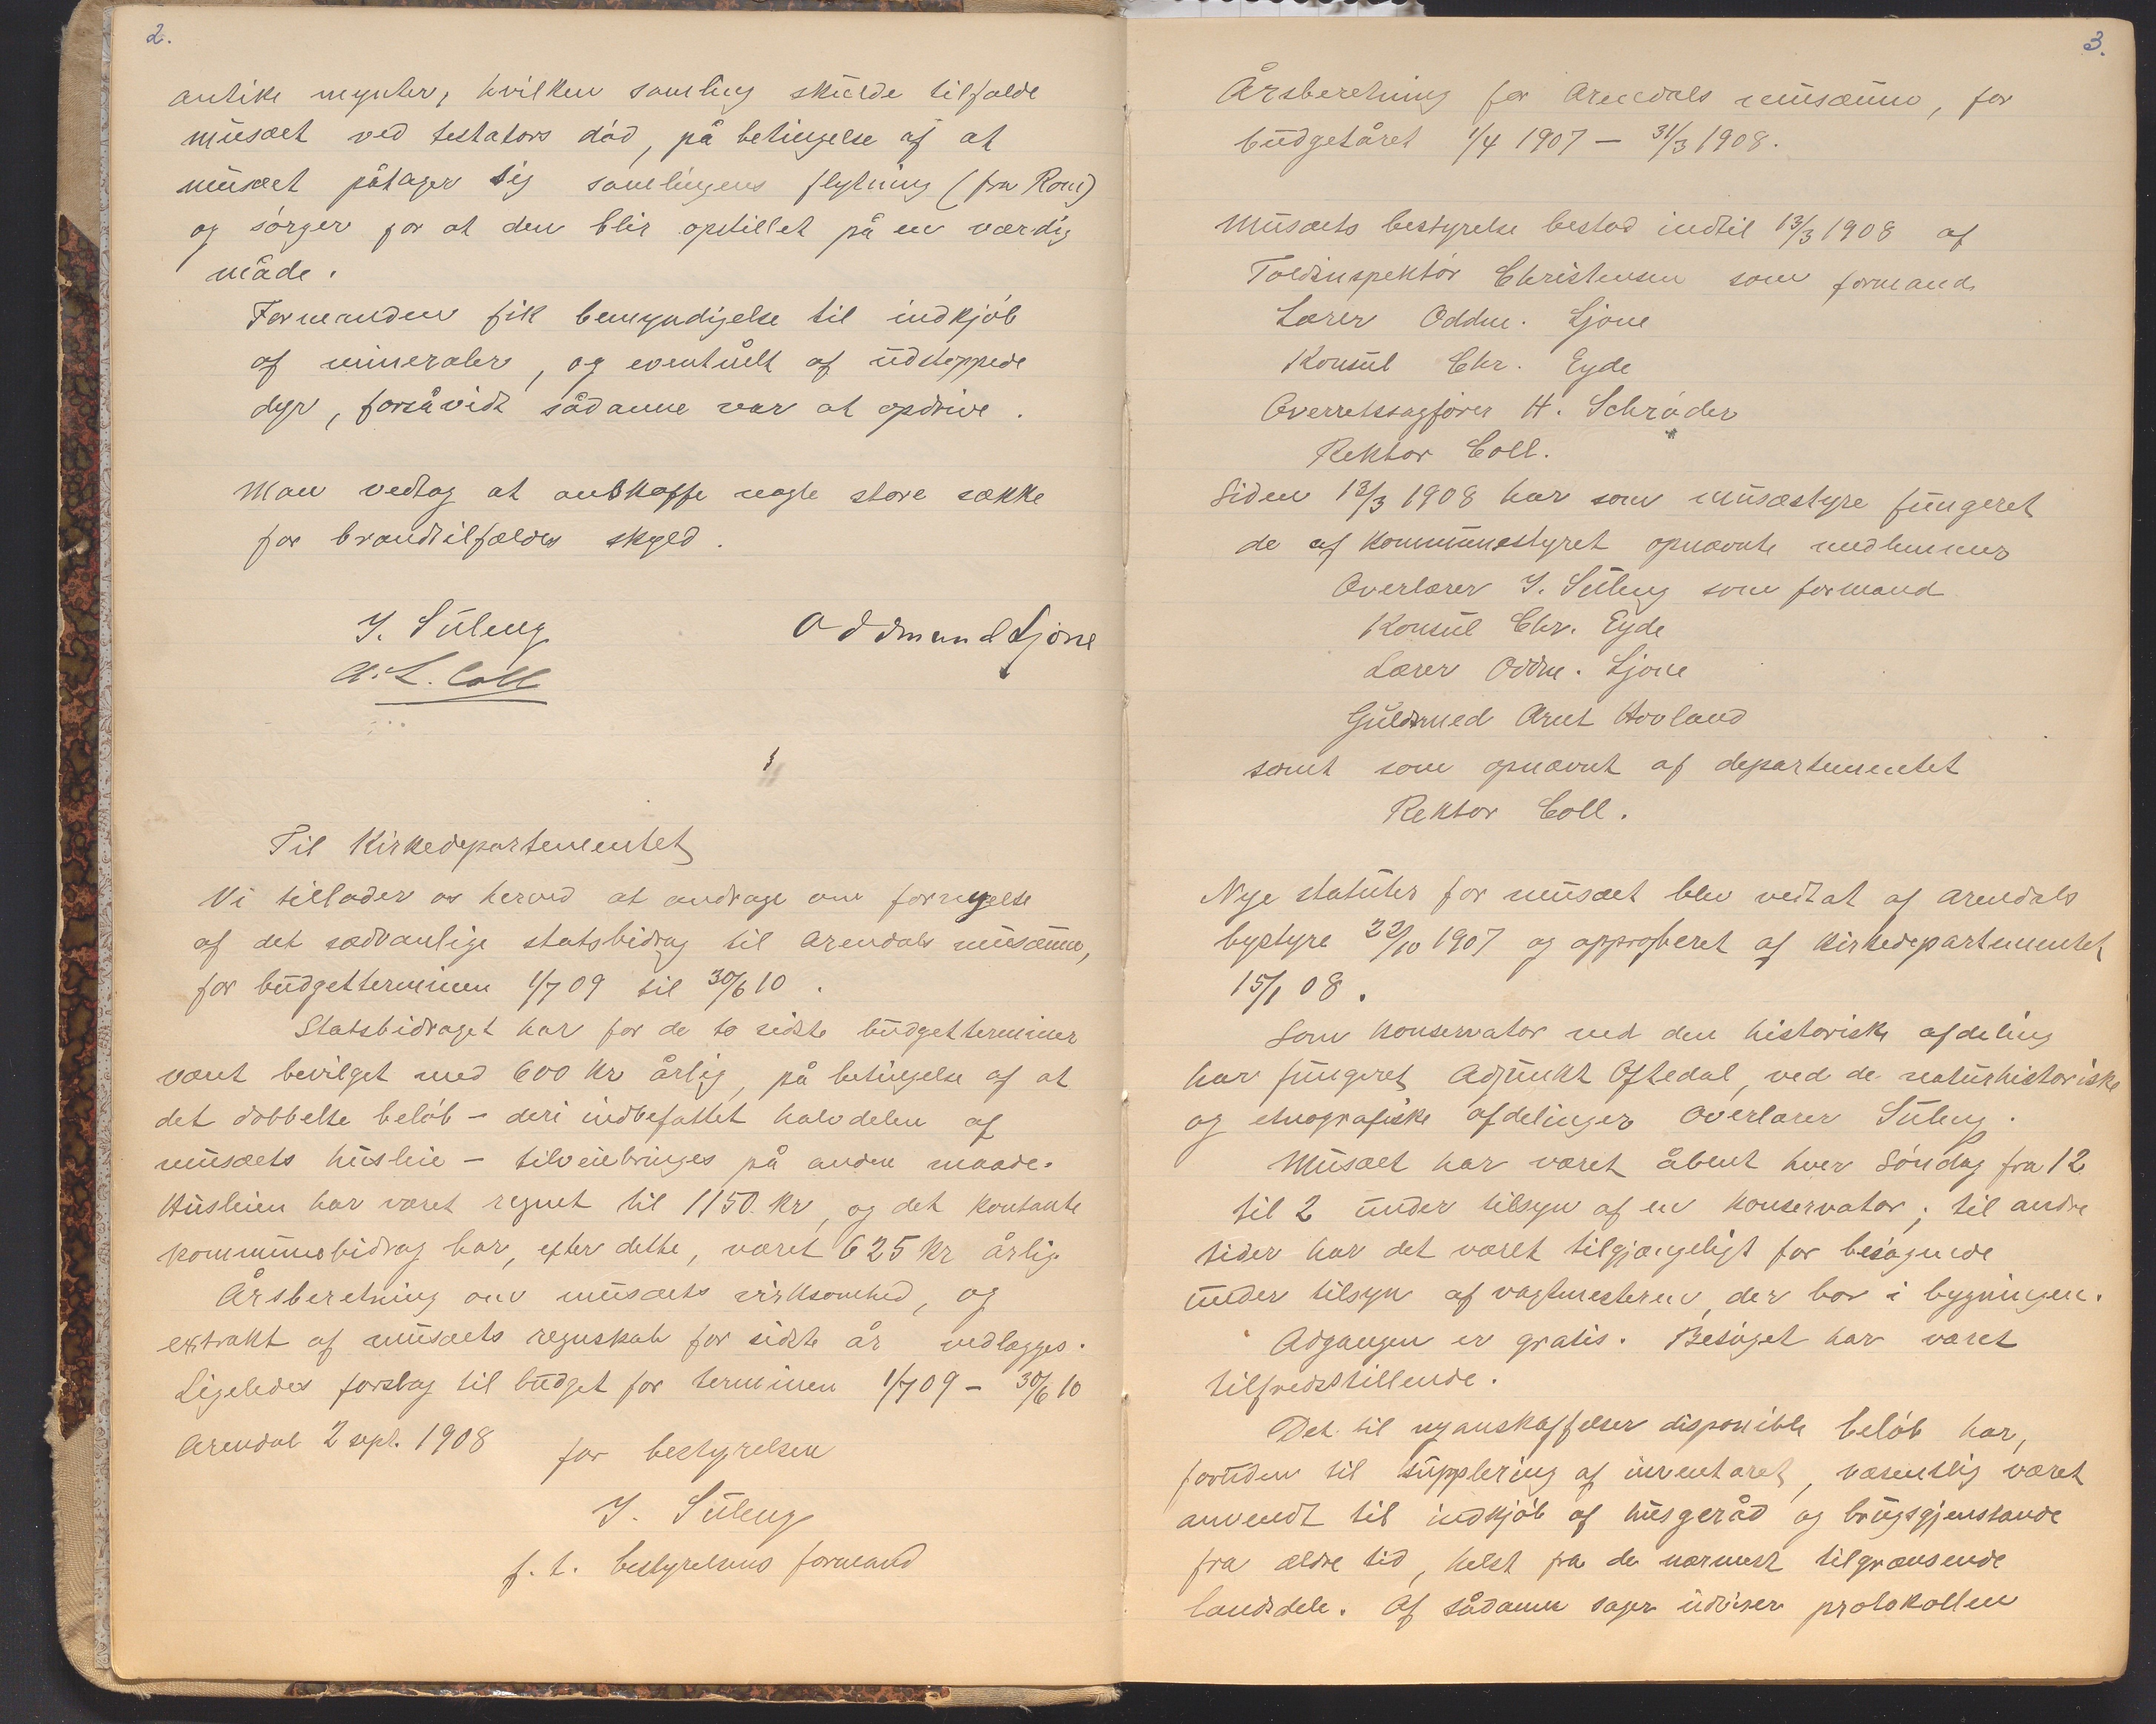 2.
antike mynter, hvilken samling skulde tilfalde
musæet ved testators død, på betingelse af at
musæet påtager sig samlingens flytning (fra Rom)
og sørger for at den blir opstillet på en værdig
måde.
Formanden fik bemyndigelse til indkjøb
af mineraler, og eventuelt af udstoppede
dyr, forsåvidt sådanne var at opdrive.
Man vedtog at anskaffe nogle store sække
for brandtilfældes skyld.
J. Süleng Oddmund Ljone
A. L. Coll
Til Kirkedepartementet
Vi tillader os herved at andrage om fornyelse
af det sædvanlige statsbidrag til Arendals musæum,
for budgetterminen 1/7 09 til 30/6 10.
Statsbidraget har for de to sidste budgetterminer
været bevilget med 600 kr årlig, på betingelse af at
det dobbelte beløb – deri indbefattet halvdelen af
musæets husleie – tilveiebringes på anden maade.
Husleien har været regnet til 1150 kr, og det kontante
kommunebidrag har, efter dette, været 625 kr årlig.
Årsberetning om musæets virksomhed, og
extrakt af musæets regnskab for sidste år vedlægges.
Ligeledes forslag til budget for terminen 1/7 09 – 30/6 10
Arendal 2 sept. 1908 for bestyrelsen
J. Süleng
f. t. bestyrelsens formand
3.
Årsberetning for Arendals musæum, for
budgetåret 1/4 1907 – 31/3 1908.
Musæets bestyrelse bestod indtil 13/3 1908 af
Toldinspektør Christensen som formand
Lærer Oddm. Ljone
Konsul Chr. Eyde
Overretssagfører H. Schrøder
Rektor Coll.
Siden 13/3 1908 har som musæstyre fungeret
de af kommunestyret opnævnte medlemmer
Overlærer J. Süleng som formand
Konsul Chr. Eyde
Lærer Oddm. Ljone
Guldsmed Arnt Hovland
samt som opnævnt af departementet
Rektor Coll.
Nye statuter for musæet blev vedtat af Arendals
bystyre 22/10 1907 og approberet af Kirkedepartementet
15/1 08.
Som konservator ved den historiske afdeling
har fungeret Adjunkt Oftedal, ved de naturhistoriske
og etnografiske afdelinger Overlærer Süleng.
Musæet har været åbent hver Søndag fra 12
til 2 under tilsyn af en konservator; til andre
tider har det været tilgjængeligt for besøgende
under tilsyn af vagtmesteren, der bor i bygningen.
Adgangen er gratis. Besøget har været
tilfredsstillende.
Det til nyanskaffelser disponible beløb har,
foruden til supplering af inventaret, væsentlig været
anvendt til indkjøb af husgeråd og brugsgjenstande
fra ældre tid, helst fra de nærmest tilgrænsende
landsdele. Af sådanne sager udviser protokollen